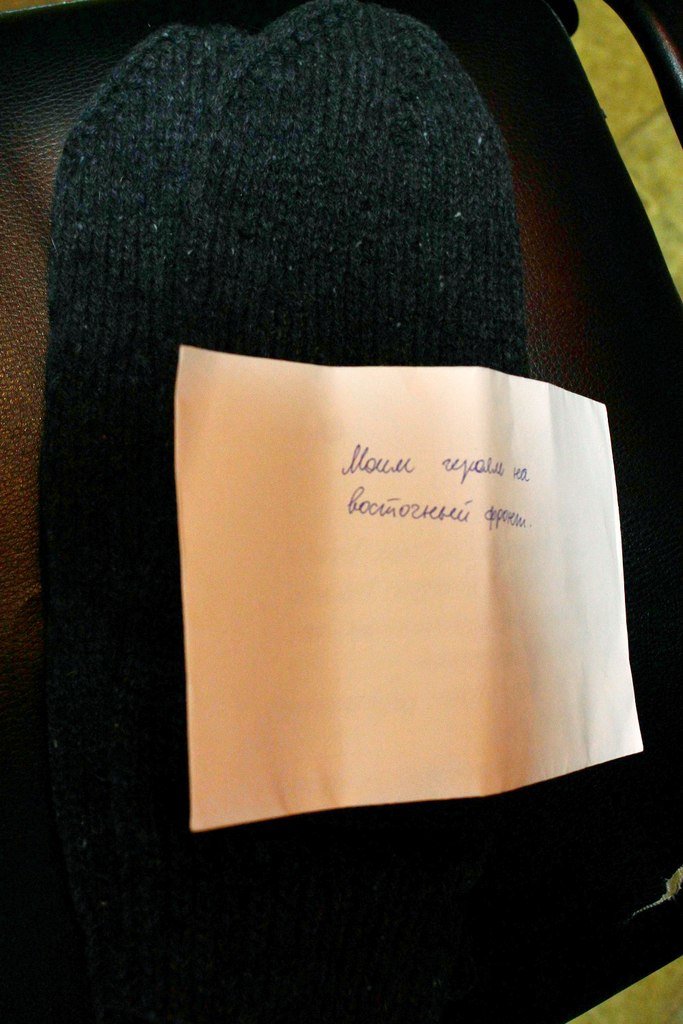 Моим героям на
восточный фронт.